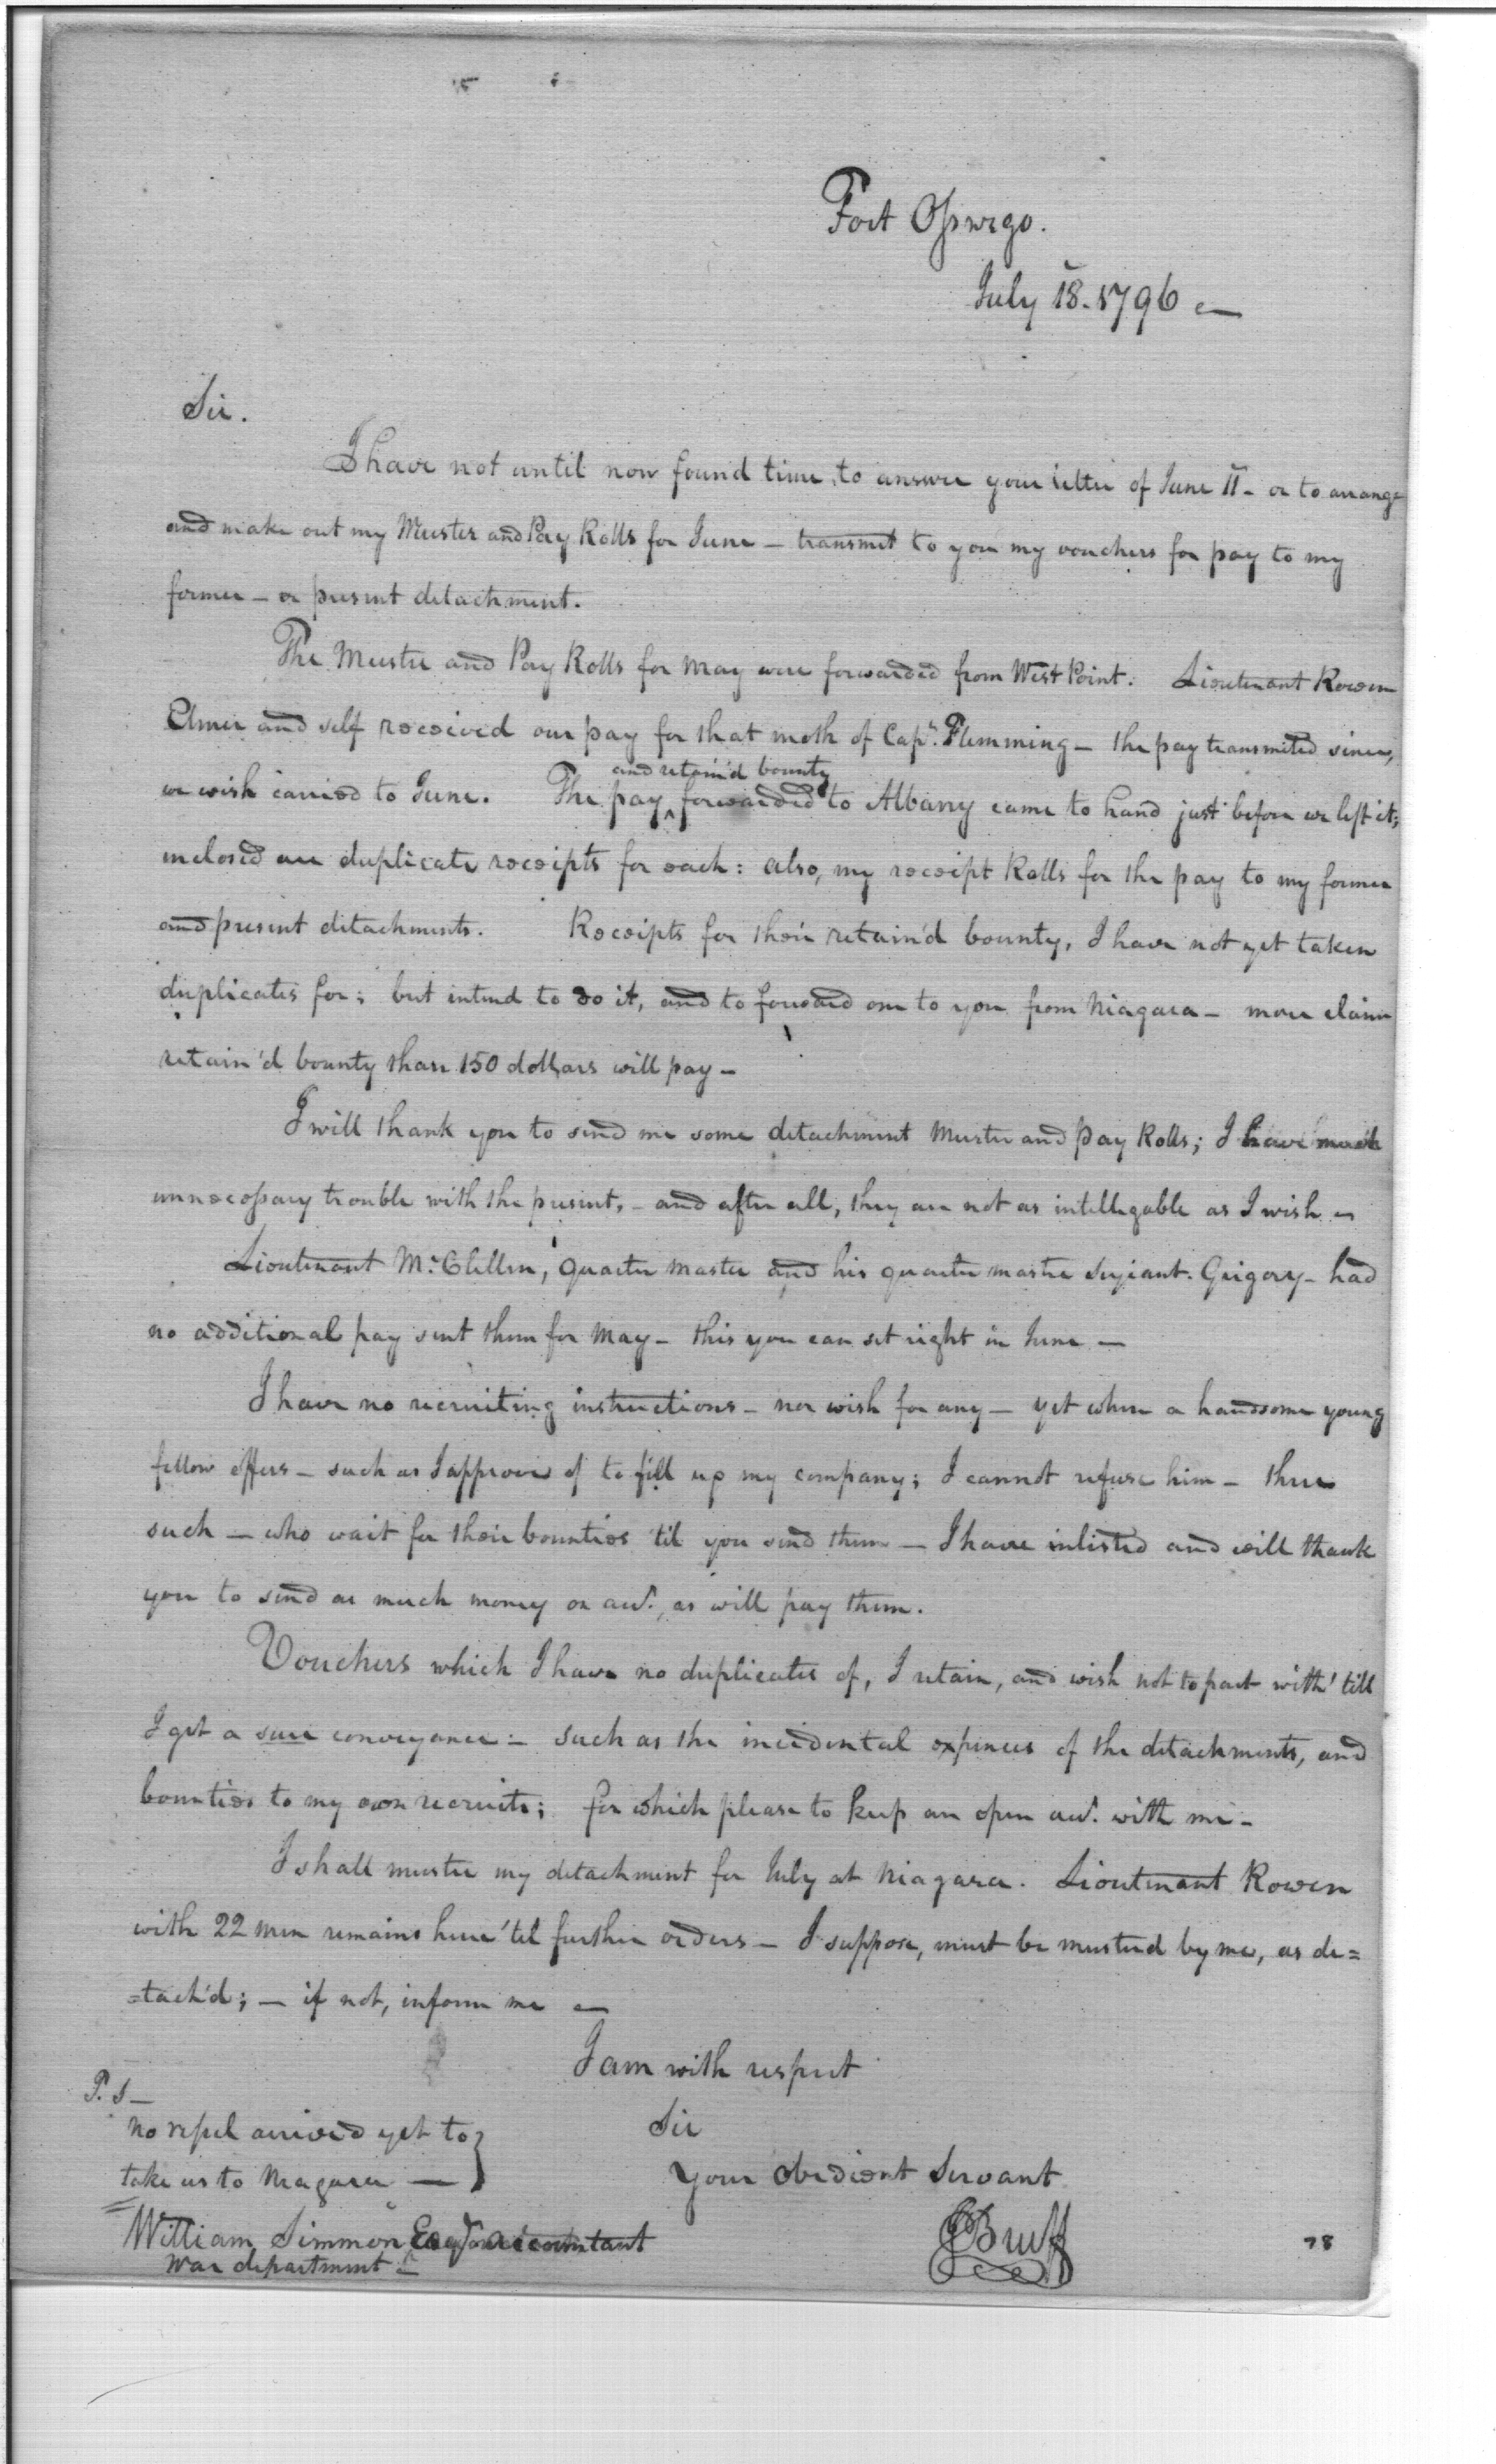 Fort Osswego.
July 18. 1796
Sir.
I have not until now found time, to answer your letter of June 11 - or to arrange
and make out my Muster and Pay Rolls for June - transmit to you my vouchers for pay to my
former - or present detachment.
The Muster and Pay Rolls for May were forwarded from West Point: Lieutenant Rowen
Elmer and self received our pay for that moth of Capn. Flemming - the pay transmited since,
we wish carried to June. The pay ^ forwarded to Albany came to hand just before we left it;
and retain'd bounty
inclosed are duplicate receipts for each: also, my receipt Rolls for the pay to my former
and present detachments. Receipts for their retain'd bounty, I have not yet taken
duplicates for; but intend to do it, and to forward one to you from Niagara - more claim
retain'd bounty than 150 dollars will pay -
I will thank you to send me some detachment Muster and Pay Rolls; I have much
unnecessary trouble with the present, - and after all, they are not as intellegable as I wish -
Lieutenant Mc.Clellen, quarter master and his quarter master serjeant. Grigory - had
no additional pay sent them for May - this you can set right in June -
I have no recruiting instructions - nor wish for any - yet when a handsome young
fellow offers - such as I approve of to fill up my company; I cannot refuse him - three
such - who wait for their bounties 'til you send them - I have inlisted and will thank
you to send as much money on acct., as will pay them.
Vouchers which I have no duplicates of, I retain, and wish not to part with 'till
I get a sure conveyance: - such as the incidental expences of the detachments, and
bounties to my own recruits; for which please to keep an open acct. with me -
I shall muster my detachment for July at Niagara. Lieutenant Rowen
with 22 men remains here 'til further orders - I suppose, must be mustered by me, as de=
=tach'd; - if not, inform me -
I am with respect
Sir
Your obedient servant
JBruff
P. S -
No vessel arrived yet to }
take us to Niagara -
William Simmon Esqr. accountant
War department
78